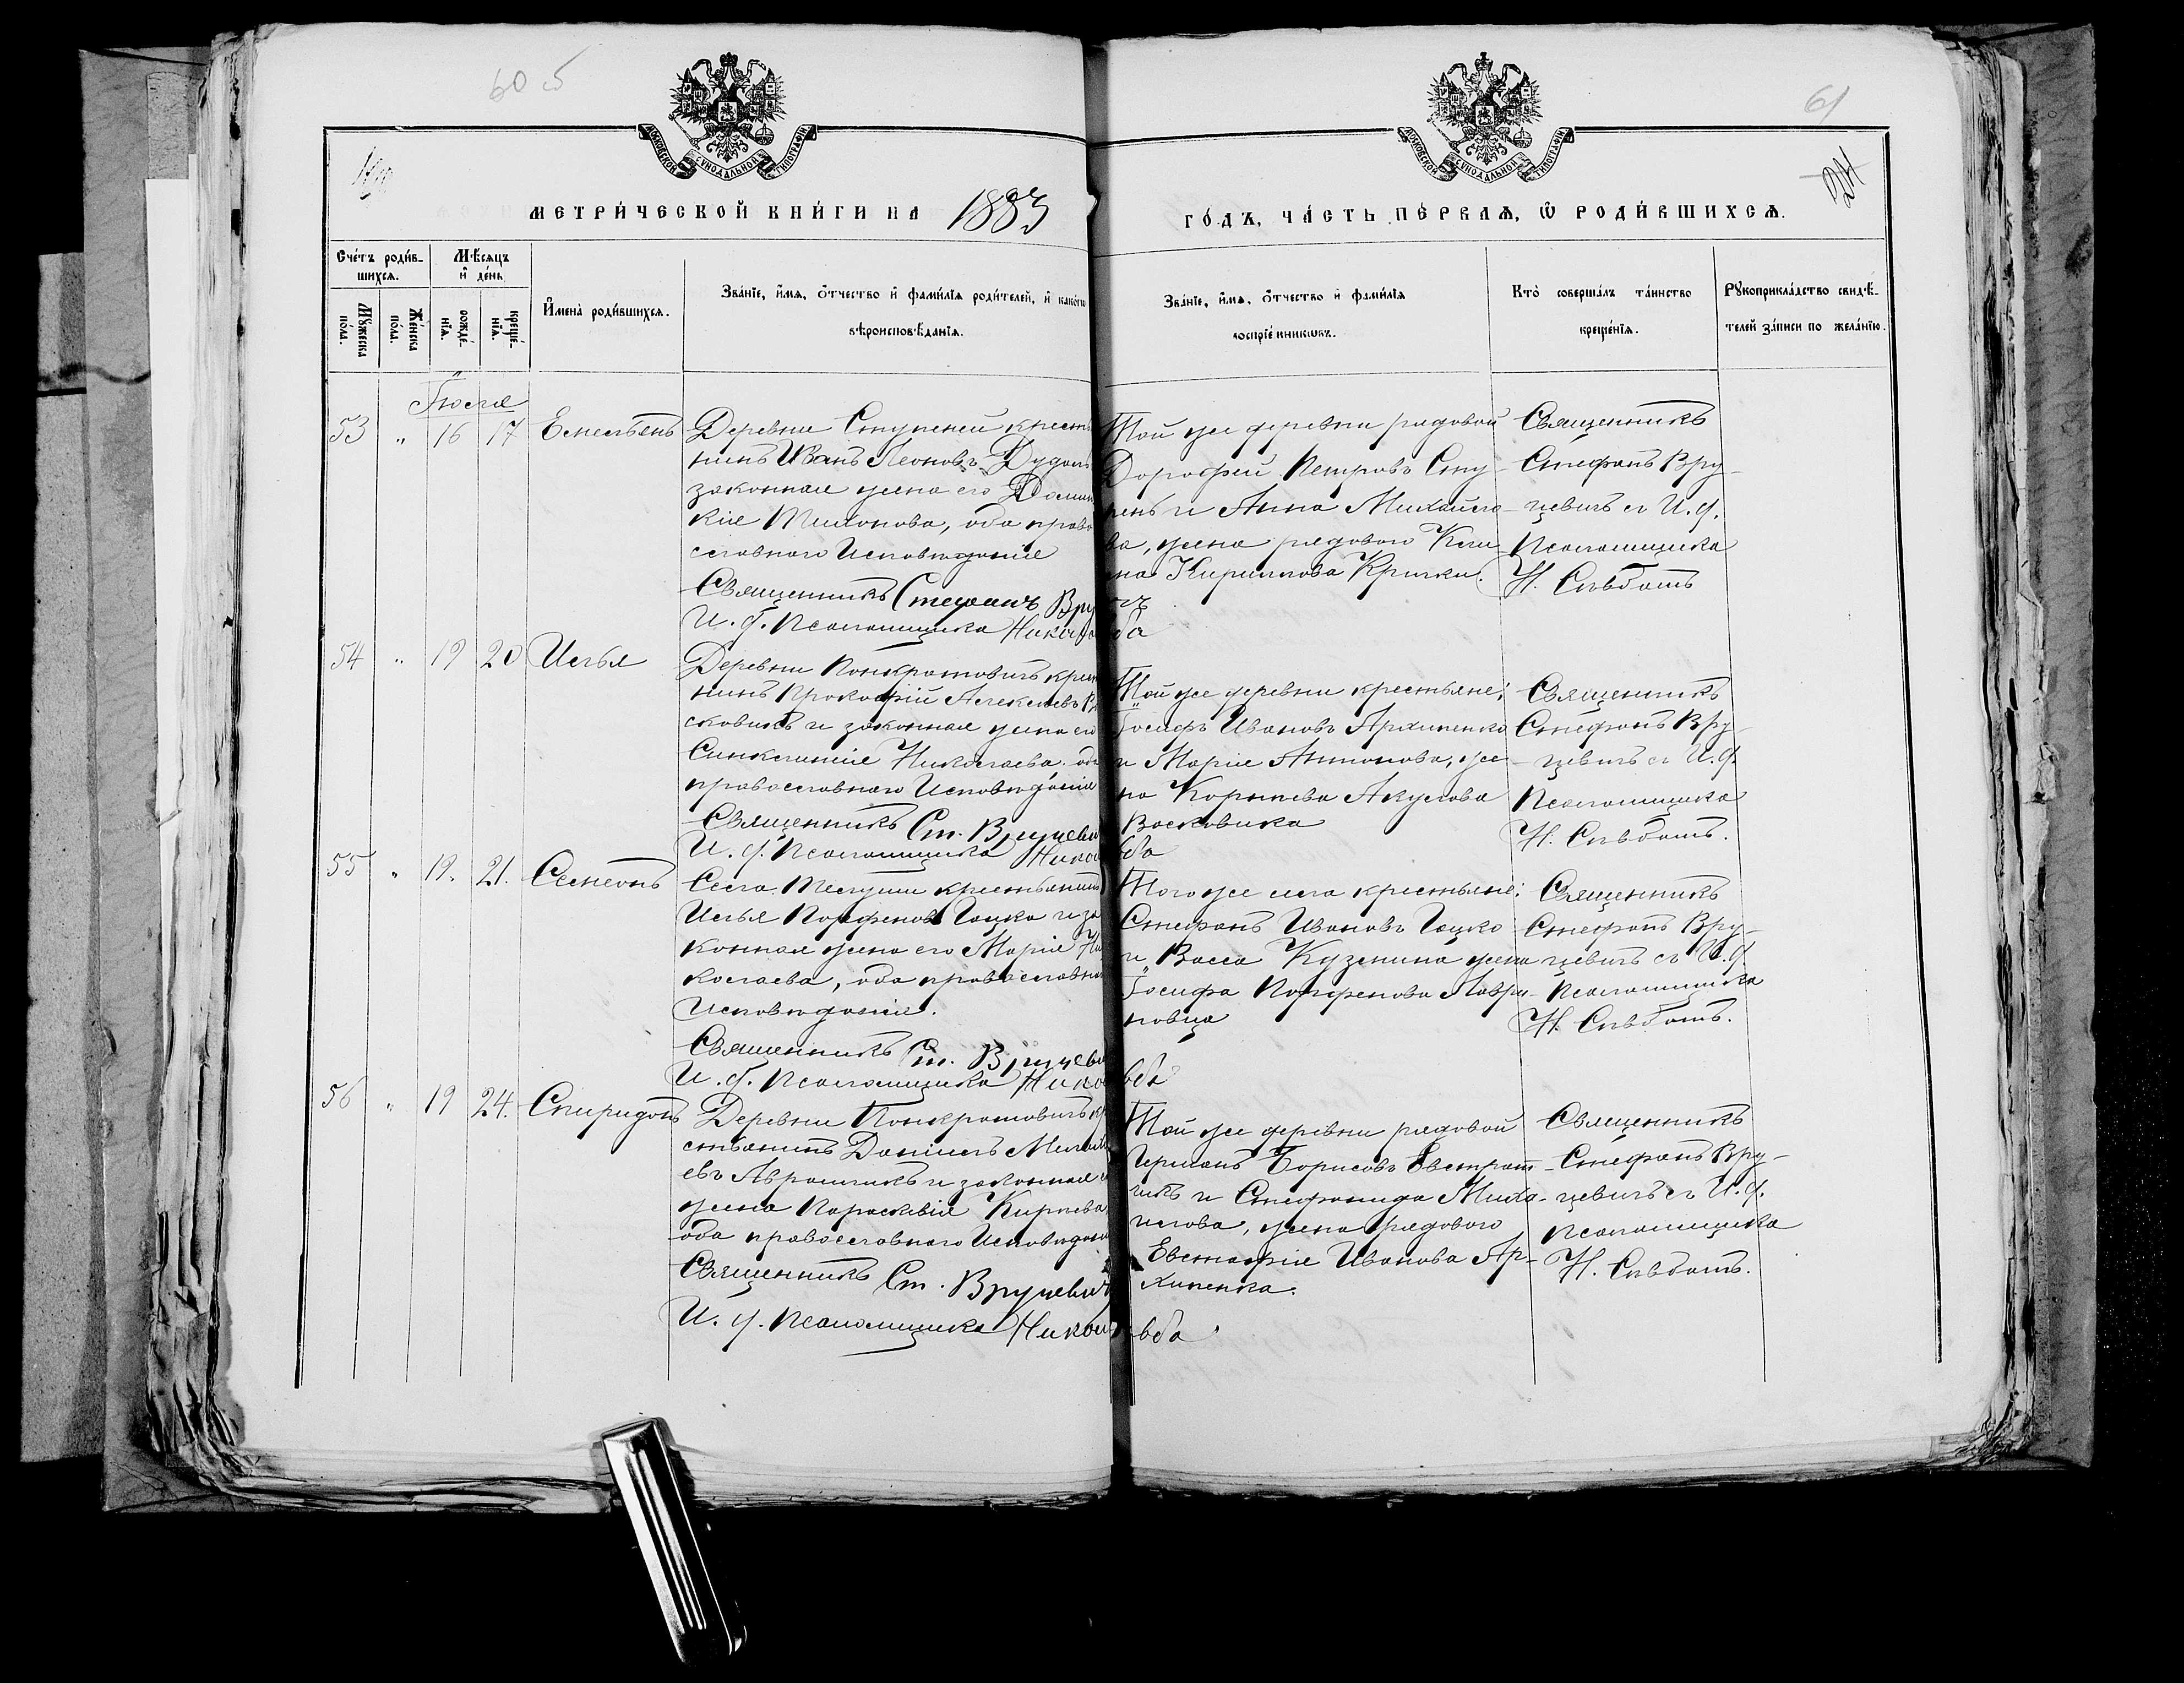 60 об
61
МОСКОВСКОЙ СѴНОДАЛЬНОЙ ТИПОГРАФІИ
МОСКОВСКОЙ СѴНОДАЛЬНОЙ ТИПОГРАФІИ
МЕТРИ́ЧЕСКОЙ КНИ́ГИ НА 1883
ГО́ДЪ, ЧА́СТЬ ПЕ́РВАѦ, Ѽ РОДИ́ВШИХСѦ.
Сче́тъ роди́в-
шихсѧ.
Мꙋ́жеска по́ла.
Же́нска по́ла.
Мѣ́сѧцъ
и҆ де́нь
рожде́-
нїѧ.
креще́-
нїѧ.
И҆мена̀ роди́вшихсѧ.
Зва́нїе, и҆́мѧ, ѻ҆́тчество и҆ фами́лїѧ роди́телей, и҆ како́гѡ
вѣроисповѣ́данїѧ.
Зва́нїе, и҆́мѧ, ѻ҆́тчество и҆ фами́лїѧ
воспрїе́мникѡвъ.
Кто̀ соверша́лъ та́инство
креще́нїѧ.
Рꙋкоприкла́дство свидѣ́-
телей за́писи по жела́нїю.
Іюля
53 " 16 17 Емельянъ
Деревни Ступеней кресть
нинъ Иванъ Леоновъ
законная жена его Домни
кія Тихонова, оба право
славнаго Исповѣданія
Священникъ Стефанъ Вру
И. д. Псаломщика Никол
Той же деревни рядовой
Дорофей Петровъ Сту-
пень и Анна Михайло-
ва, жена рядового
на Кириллова
Священникъ
Стефанъ Вру-
цевичъ съ И. д.
Псаломщика
Н. Съвботъ
54 " 19 20 Илья
Деревни Понкратовичъ крест
нинъ Прокофій Алексеевъ
сковикъ и законная жена его
Синклитикія Николаева, оба
православнаго Исповѣданія
Священникъ Ст. Вруцеви
И. д. Псаломщика Никол
Той же деревни крестьяне:
Іосифъ Ивановъ Архипенко
и Марія Антонова, же-
на Корнѣева Акулова
Восковика
Священникъ
Стефанъ Вру-
цевичъ съ И. д.
Псаломщика
Н. Съвботъ.
55 " 19. 21. Симеонъ
Села Телуши крестьянинъ
Илья Парфеновъ Гацко и за
конная жена его Марія Ни
колаева, оба православна
Исповѣданія.
Священникъ Ст. Вруцеви
И. д. Псаломщика Никол
Того же села крестьяне:
Стефанъ Ивановъ Гацко
и Васса Кузмина жена
Іосифа Парфенова Лаври-
новца
Священникъ
Стефанъ Вру-
цевичъ съ И. д.
Псаломщика
Н. Съвботъ.
56 " 19 24. Спиридонъ
Деревни Понкратовичъ кре
стьянинъ Даніилъ
евъ Авраменко и законная его
жена Параскевія Карпова
оба православнаго Исповѣдан
Священникъ Ст. Вруцевичъ
И. д. Псаломщика Никол
Той же деревни рядовой
Германъ Борисовъ Евстрат-
чикъ и Стефанида Миха-
илова, жена рядового
Евстафія Иванова Ар-
хипенка.
Священникъ
Стефанъ Вру-
цевичъ съ И. д.
Псаломщика
Н. Съвботъ.